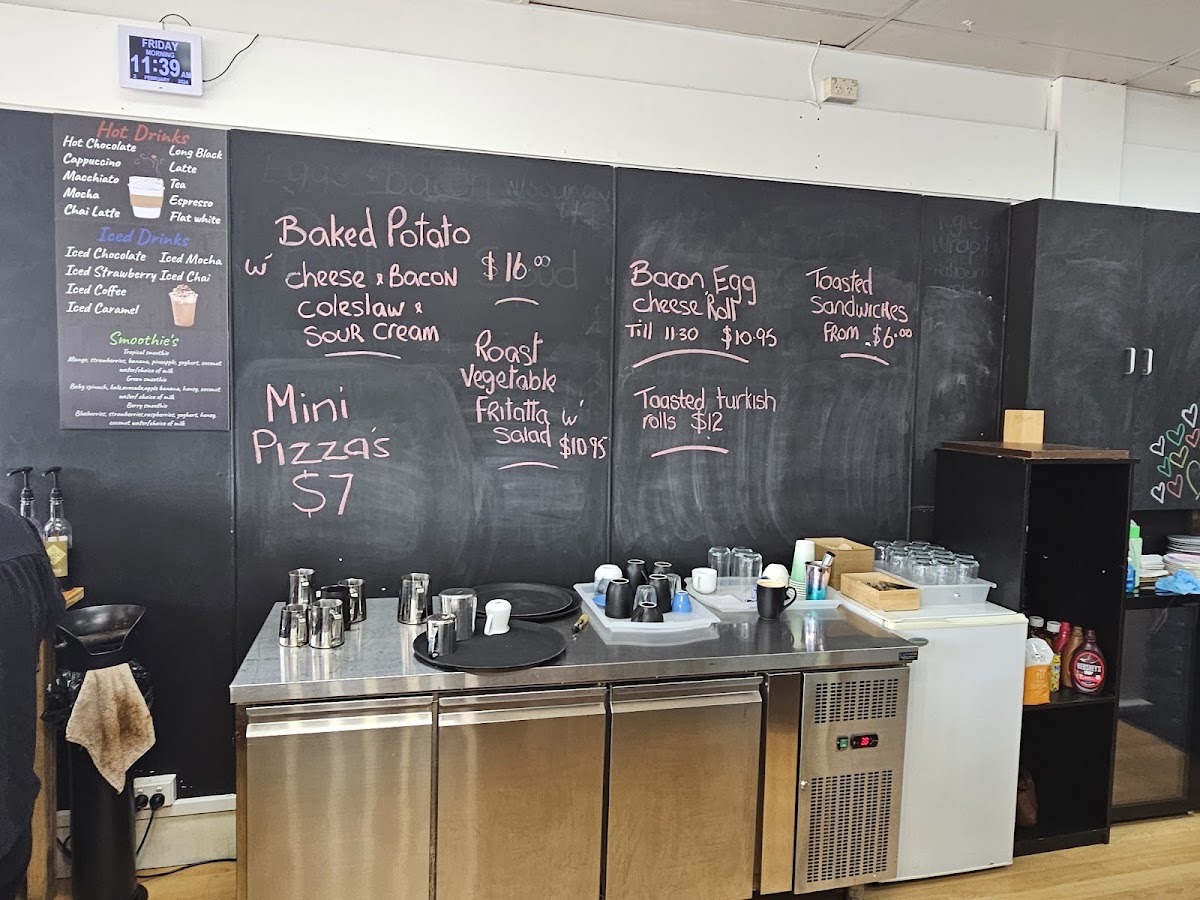 FRIDAY
MORNING
11:39 AM
2 FEBRUARY 2024
Hot Drinks
Hot Chocolate
Cappuccino
Macchiato
Mocha
Chai Latte
Long Black
Latte
Tea
Espresso
Flat white
Iced Drinks
Iced Chocolate
Iced Strawberry
Iced Coffee
Iced Caramel
Iced Mocha
Iced Chai
Smoothie's
Tropical smoothie
Mango, strawberries, banana, pineapple, yoghurt, coconut
water/choice of milk
Green smoothie
Baby spinach, kale, avocado, apple banana, honey, coconut
water/ choice of milk
Berry smoothie
Blueberries, strawberries, raspberries, yoghurt, honey,
coconut water/choice of milk
Baked Potato
w' cheese & Bacon
coleslaw &
sour cream
$16.00
Mini
Pizza's
$7
Roast
Vegetable
Fritatta w'
Salad $10.95
Bacon Egg
cheese Roll
Till 11:30 $10.95
Toasted turkish
rolls $12
Toasted
Sandwiches
From $6.00
HERSHEY'S